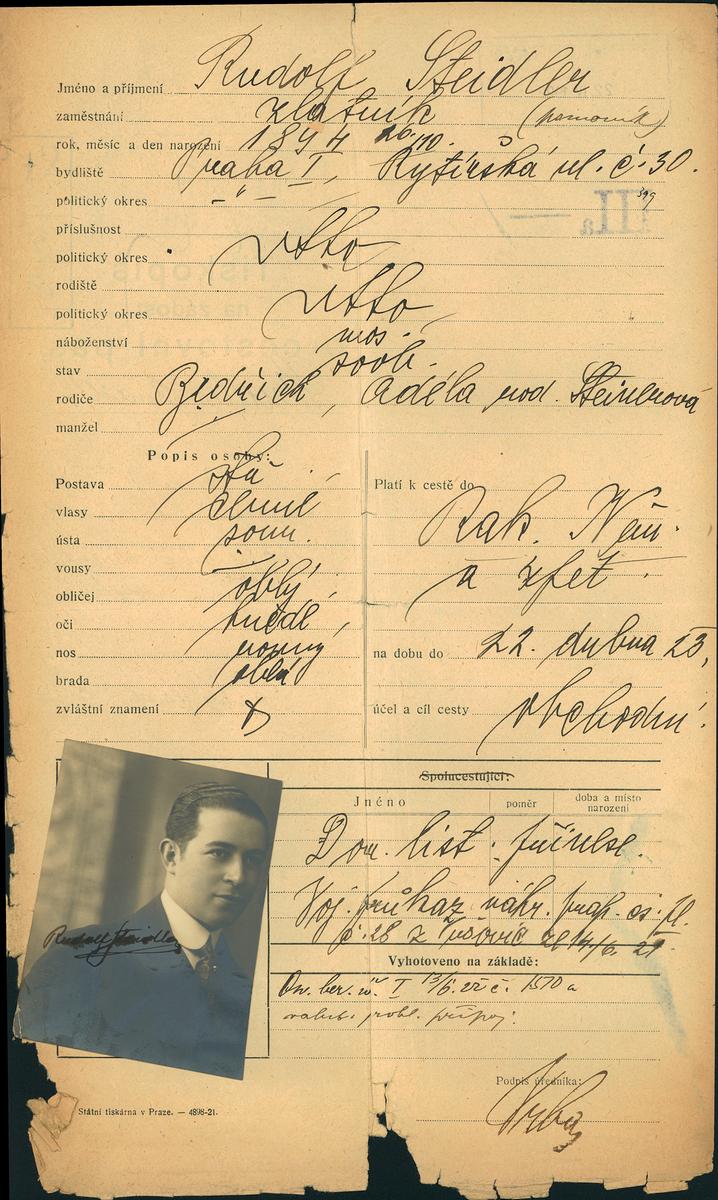 Jméno a příjmení Rudolf Steidler
zaměstnání zlatník (pomocník)
rok, měsíc a den narození 1894 26./10.
bydliště Praha I, Rytířská ul. č. 30.
politický okres
příslušnost
politický okres
rodiště
politický okres
náboženství mos.
stav svob.
rodiče Bedřich, Adéla rod. Steinerová
manžel
Popis osoby:
Postava stř.
vlasy černé
ústa soum.
vousy —
obličej oblý
oči hnědé
nos rovný
brada oblá
zvláštní znamení
Platí k cestě do
Rak. Něm.
a zpět.
na dobu do 22. dubna 23,
účel a cíl cesty obchodní.
Spolucestující:
Jméno poměr doba a místo narození
Dom. list.
Voj. průkaz náhr. prap.
č. 28 z Vršovic 14/6. 21.
Vyhotoveno na základě:
I 13/6. 22 č. 1570 a
Rudolf Steidler
Podpis úředníka:
Vrba
Státní tiskárna v Praze. — 4898-21.
IIIa